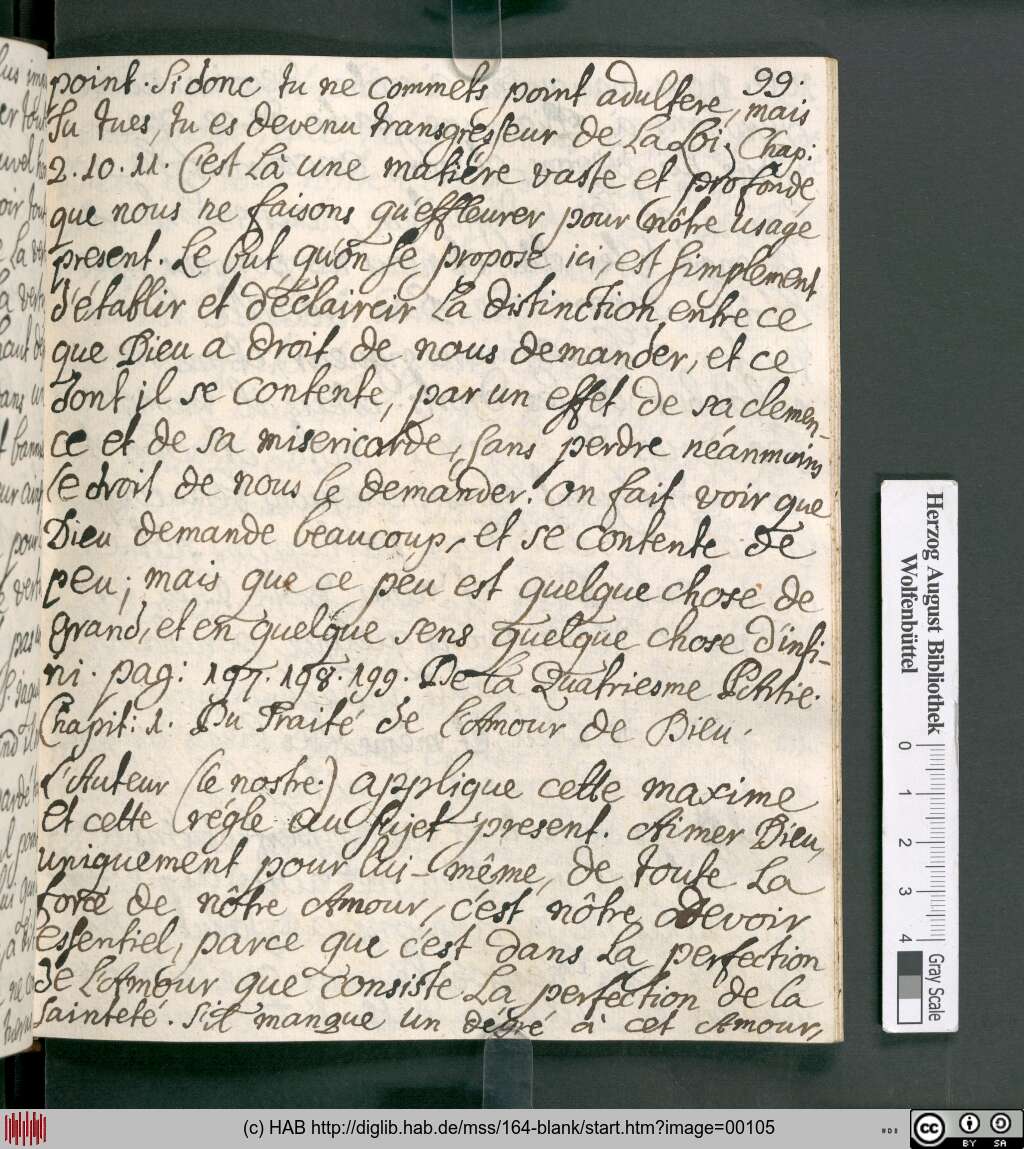 99.
point. Si donc tu ne commets point adultere, mais
Su tues, tu es devenu transgresseur de La Loi. Chap:
2. 10. 11. C'est Là une matiére vaste et profonde,
que nous ne faisons qu'effleurer pour nôtre usage
present. Le but qu'on se propose ici, est simplement
d'établir et d'éclaircir La distinction entre ce
que Dieu a droit de nous demander, et ce
dont il se contente, par un effet de sa clemen-
ce et de sa misericorde, sans perdre néanmoins
le droit de nous le demander. On fait voir que
Dieu demande beaucoup, et se contente de
peu; mais que ce peu est quelque chose de
grand, et en quelque sens quelque chose d'infi-
ni. pag: 197. 198. 199. De la Quatriesme Partie.
Chapit: 1. Du Traité de l'Amour de Dieu.
L'Auteur (le nostre.) applique cette maxime
et cette régle au sujet present. Aimer Dieu,
uniquement pour lui-même, de toute La
force de nôtre Amour, c'est nôtre devoir
essentiel, parce que c'est dans La perfection
de L'Amour que consiste La perfection de la
sainteté. S'il manque un dégré à cet Amour,
Herzog August Bibliothek
Wolfenbüttel
0 1 2 3 4
Gray Scale
(c) HAB http://diglib.hab.de/mss/164-blank/start.htm?image=00105
cc BY SA